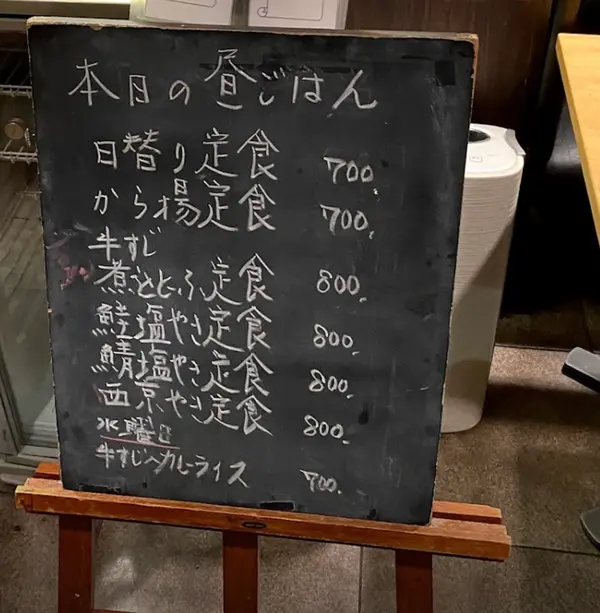 本日の昼ごはん
日替り定食 700.
から揚定食 700.
牛すじ
煮こみとふ定食 800.
鮭塩やき定食 800.
鯖塩やき定食 800.
西京やき定食 800.
水曜日
牛すじカレーライス 700.